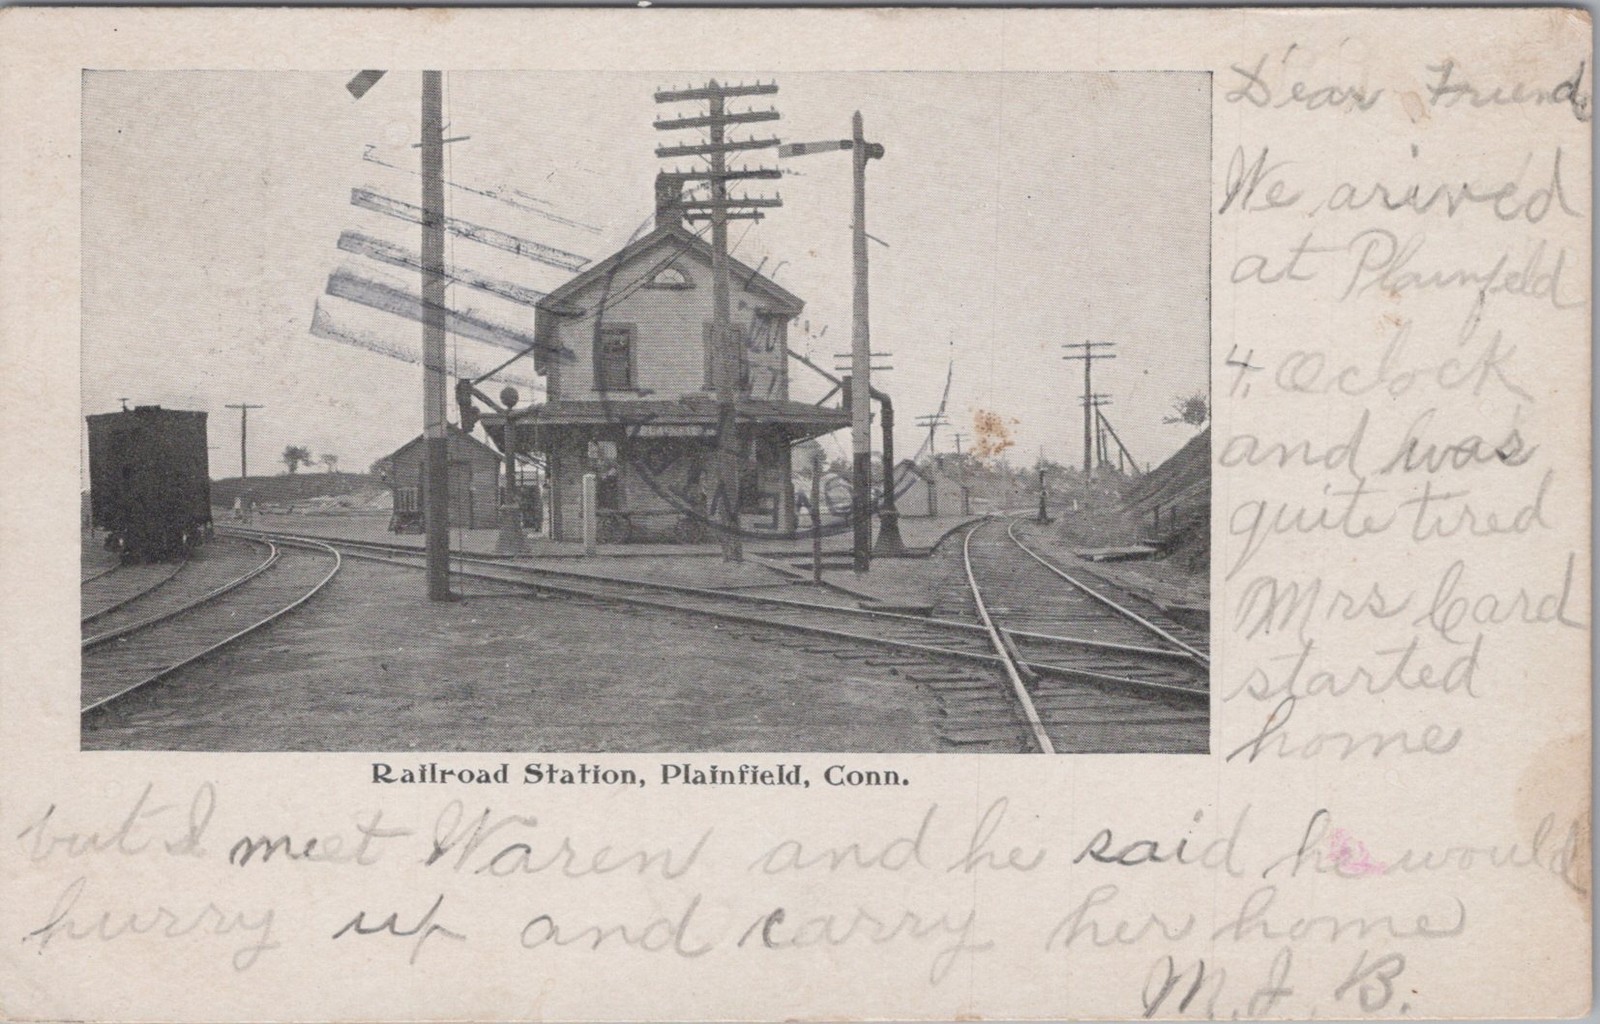 Dear Friend
We arived
at Plainfeld
4. Oclock
and was
quite tired
Mrs Card
started
home
Railroad Station, Plainfield, Conn.
but I meet Waren and he said he would
hurry up and carry her home
M. J. B.